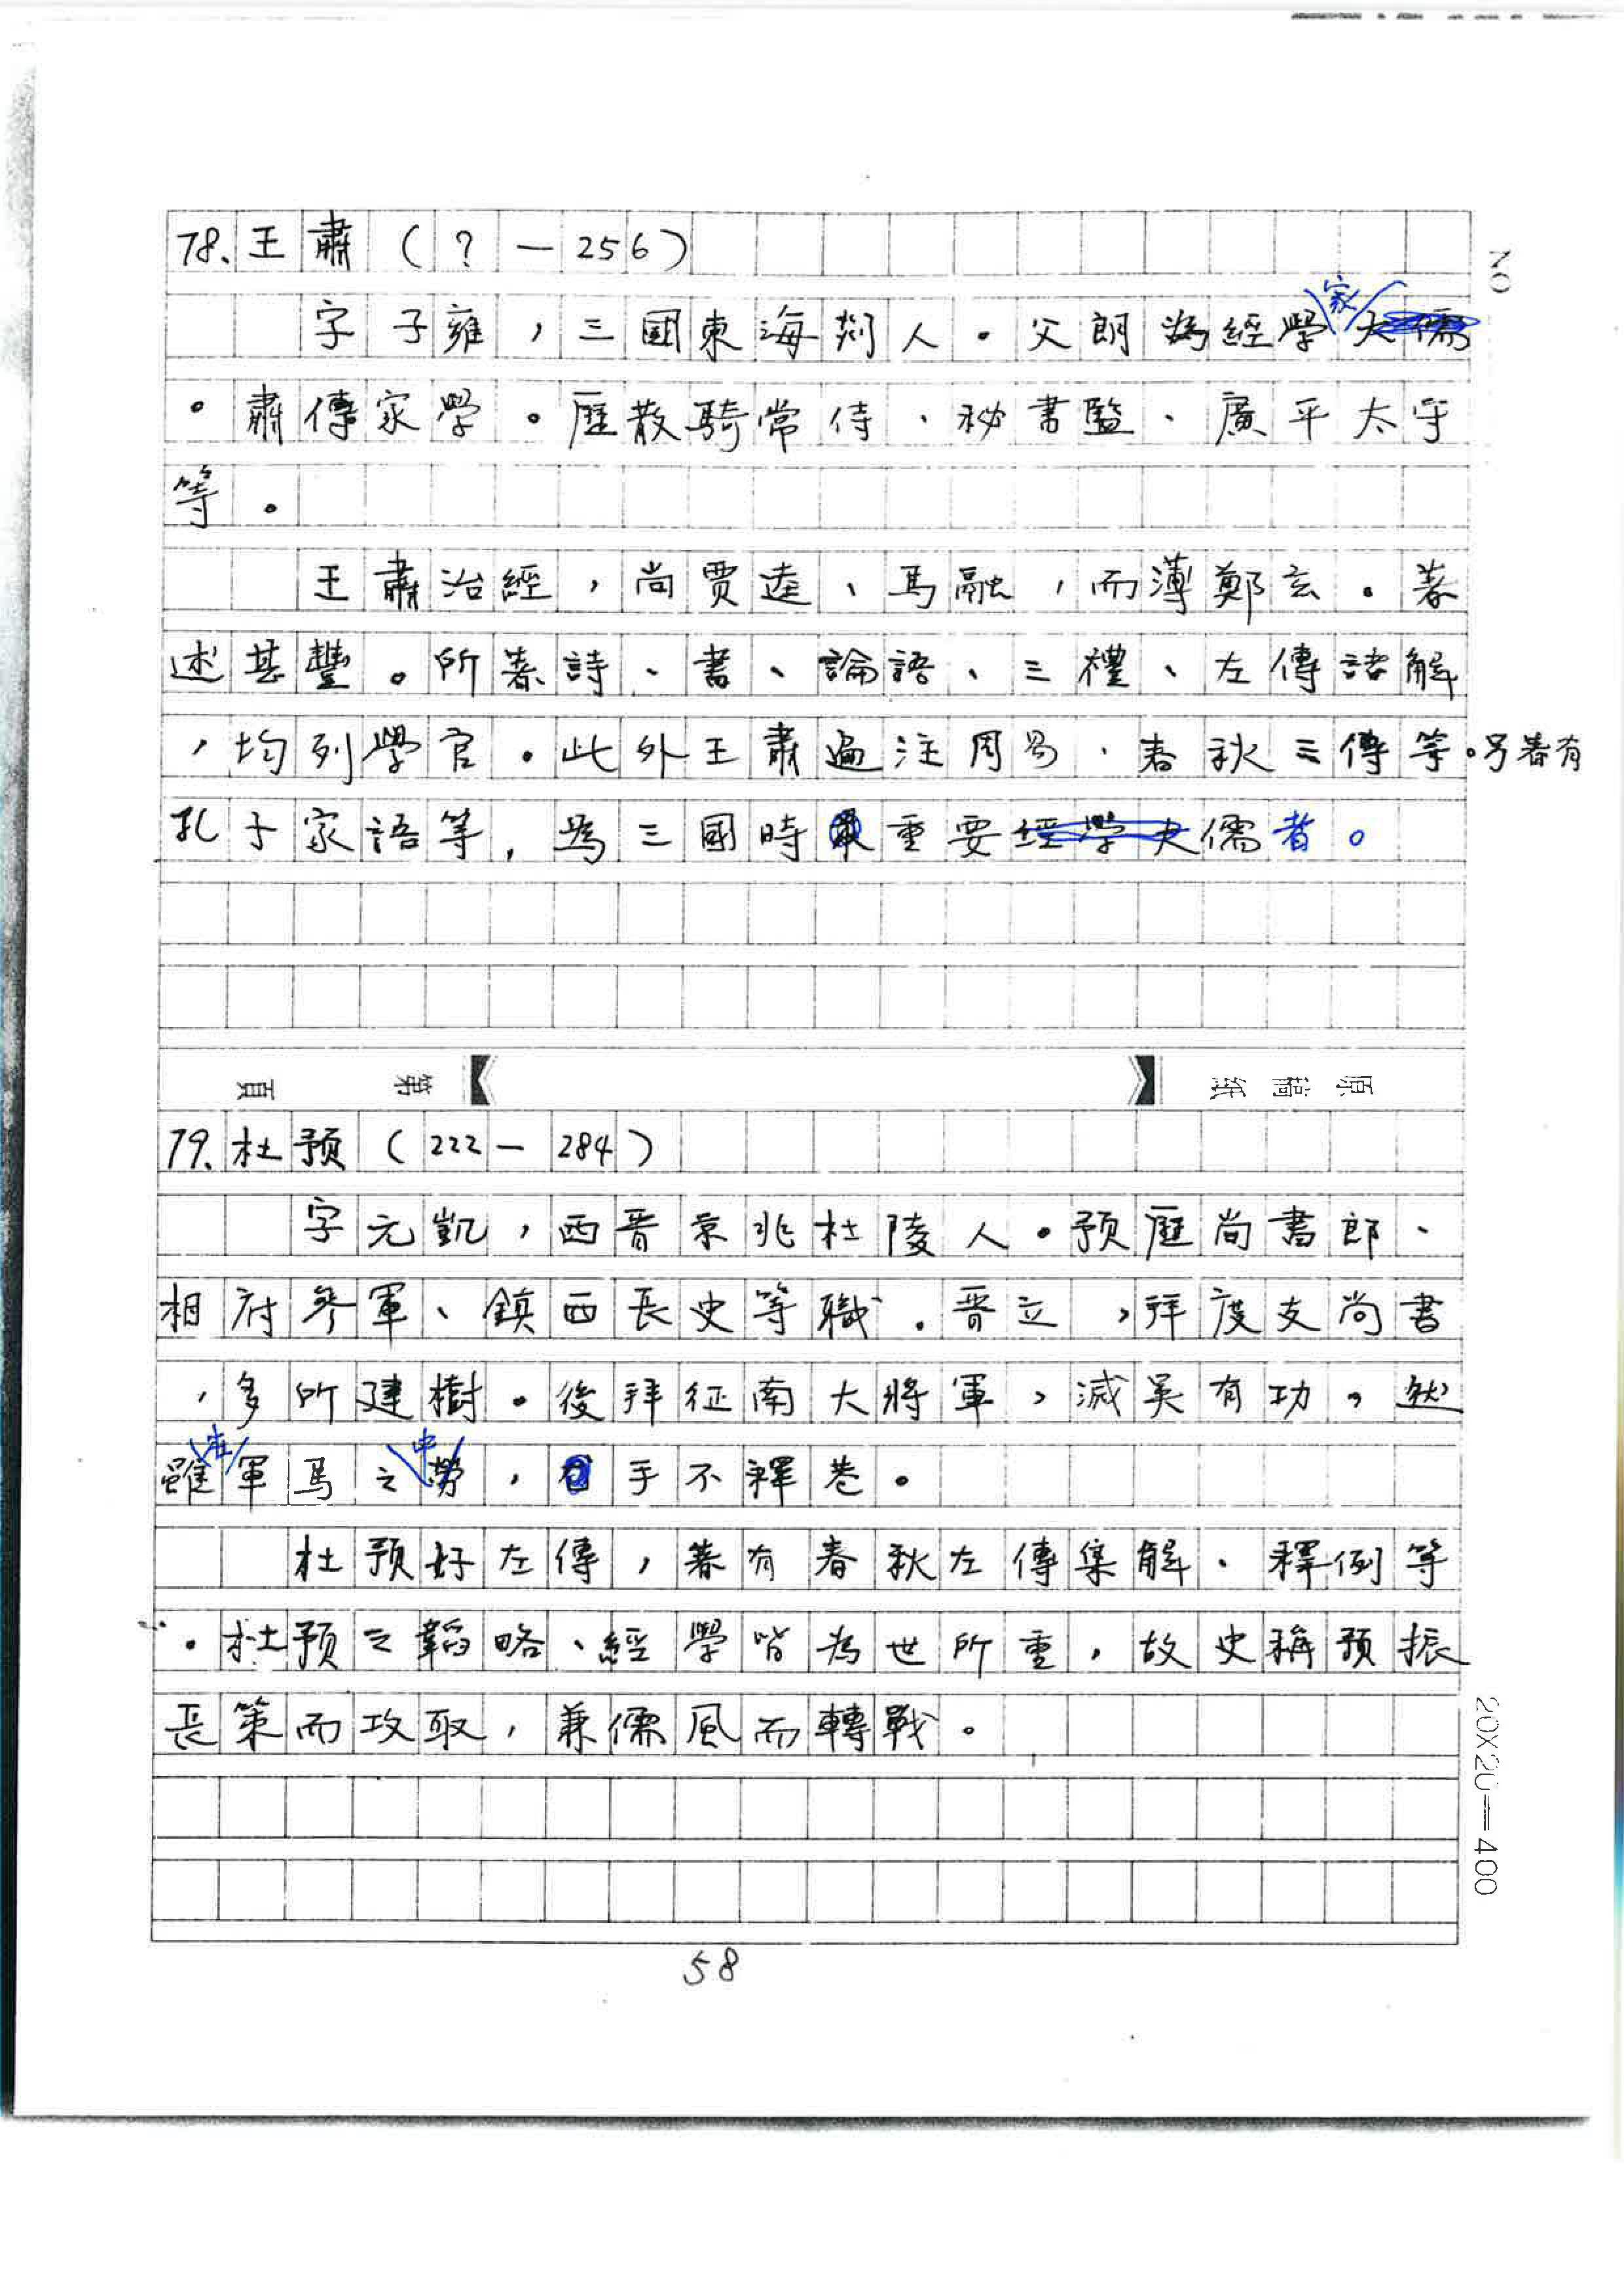 78.王肅(?—256)
字子雍,三國東海剡人。父朗為經學家
。肅傳家學。歷散騎常侍、秘書監、廣平太守
等。
王肅治經,尚賈逵、馬融,而薄鄭玄。著
述甚豐。所著詩、書、論語、三禮、左傳諸解
,均列學官。此外王肅遍注周易、春秋三傳等。另著有
孔子家語等,為三國時重要儒者。
第 頁
原稿紙
79.杜預(222—284)
字元凱,西晉京兆杜陵人。預歷尚書郎、
相府參軍、鎮西長史等職。晉立,拜度支尚書
,多所建樹。後拜征南大將軍,滅吳有功。然
雖在軍馬之中勞,手不釋卷。
杜預好左傳,著有春秋左傳集解、釋例等
。杜預之韜略、經學皆為世所重,故史稱預振
長策而攻取,兼儒風而轉戰。
20X20=400
58